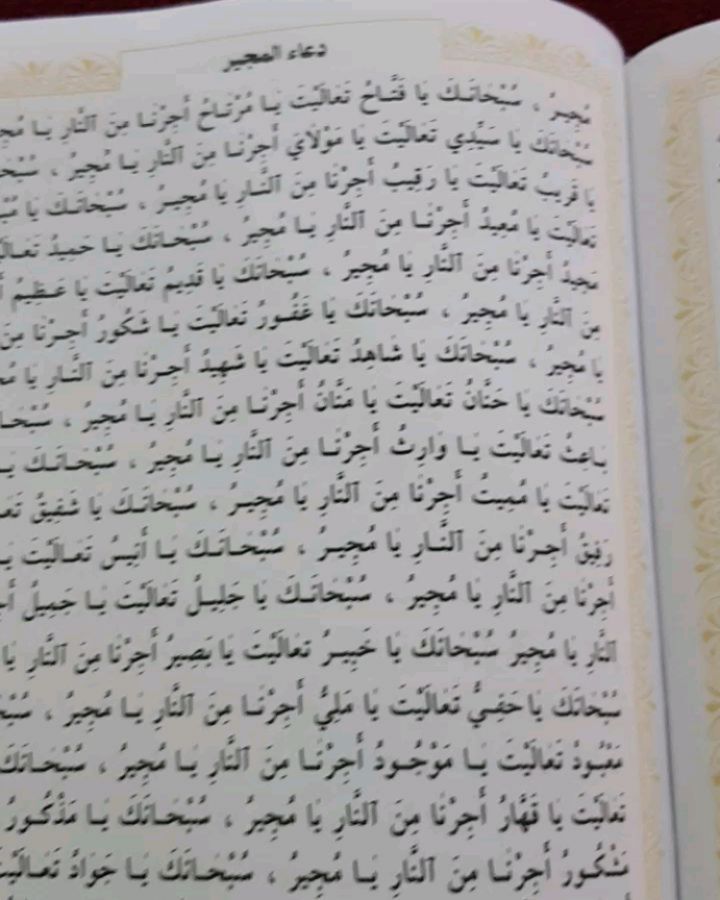 دعاء المجير
مُجِيرُ ، سُبْحَانَكَ يَا فَتَّاحُ تَعَالَيْتَ يَا مُرْتَاحُ أَجِرْنَا مِنَ ٱلنَّارِ يَا
سُبْحَانَكَ يَا سَيِّدِي تَعَالَيْتَ يَا مَوْلَايَ أَجِرْنَا مِنَ ٱلنَّارِ يَا مُجِيرُ ،
يَا قَرِيبُ تَعَالَيْتَ يَا رَقِيبُ أَجِرْنَا مِنَ ٱلنَّارِ يَا مُجِيرُ ، سُبْحَانَكَ يَا
تَعَالَيْتَ يَا مُعِيدُ أَجِرْنَا مِنَ ٱلنَّارِ يَا مُجِيرُ ، سُبْحَانَكَ يَا حَمِيدُ
مَجِيدُ أَجِرْنَا مِنَ ٱلنَّارِ يَا مُجِيرُ ، سُبْحَانَكَ يَا قَدِيمُ تَعَالَيْتَ يَا عَظِيمُ
مِنَ ٱلنَّارِ يَا مُجِيرُ ، سُبْحَانَكَ يَا غَفُورُ تَعَالَيْتَ يَا شَكُورُ أَجِرْنَا مِنَ
يَا مُجِيرُ ، سُبْحَانَكَ يَا شَاهِدُ تَعَالَيْتَ يَا شَهِيدُ أَجِرْنَا مِنَ ٱلنَّارِ يَا
سُبْحَانَكَ يَا حَنَّانُ تَعَالَيْتَ يَا مَنَّانُ أَجِرْنَا مِنَ ٱلنَّارِ يَا مُجِيرُ ،
بَاعِثُ تَعَالَيْتَ يَا وَارِثُ أَجِرْنَا مِنَ ٱلنَّارِ يَا مُجِيرُ ، سُبْحَانَكَ يَا
تَعَالَيْتَ يَا مُمِيتُ أَجِرْنَا مِنَ ٱلنَّارِ يَا مُجِيرُ ، سُبْحَانَكَ يَا شَفِيقُ
رَفِيقُ أَجِرْنَا مِنَ ٱلنَّارِ يَا مُجِيرُ ، سُبْحَانَكَ يَا أَنِيسُ تَعَالَيْتَ يَا
أَجِرْنَا مِنَ ٱلنَّارِ يَا مُجِيرُ ، سُبْحَانَكَ يَا جَلِيلُ تَعَالَيْتَ يَا جَمِيلُ
ٱلنَّارِ يَا مُجِيرُ سُبْحَانَكَ يَا خَبِيرُ تَعَالَيْتَ يَا بَصِيرُ أَجِرْنَا مِنَ ٱلنَّارِ يَا
سُبْحَانَكَ يَا حَفِيُّ تَعَالَيْتَ يَا مَلِيُّ أَجِرْنَا مِنَ ٱلنَّارِ يَا مُجِيرُ ،
مَعْبُودُ تَعَالَيْتَ يَا مَوْجُودُ أَجِرْنَا مِنَ ٱلنَّارِ يَا مُجِيرُ ، سُبْحَانَكَ
تَعَالَيْتَ يَا قَهَّارُ أَجِرْنَا مِنَ ٱلنَّارِ يَا مُجِيرُ ، سُبْحَانَكَ يَا مَذْكُورُ
مَشْكُورُ أَجِرْنَا مِنَ ٱلنَّارِ يَا مُجِيرُ ، سُبْحَانَكَ يَا جَوَادُ تَعَالَيْتَ